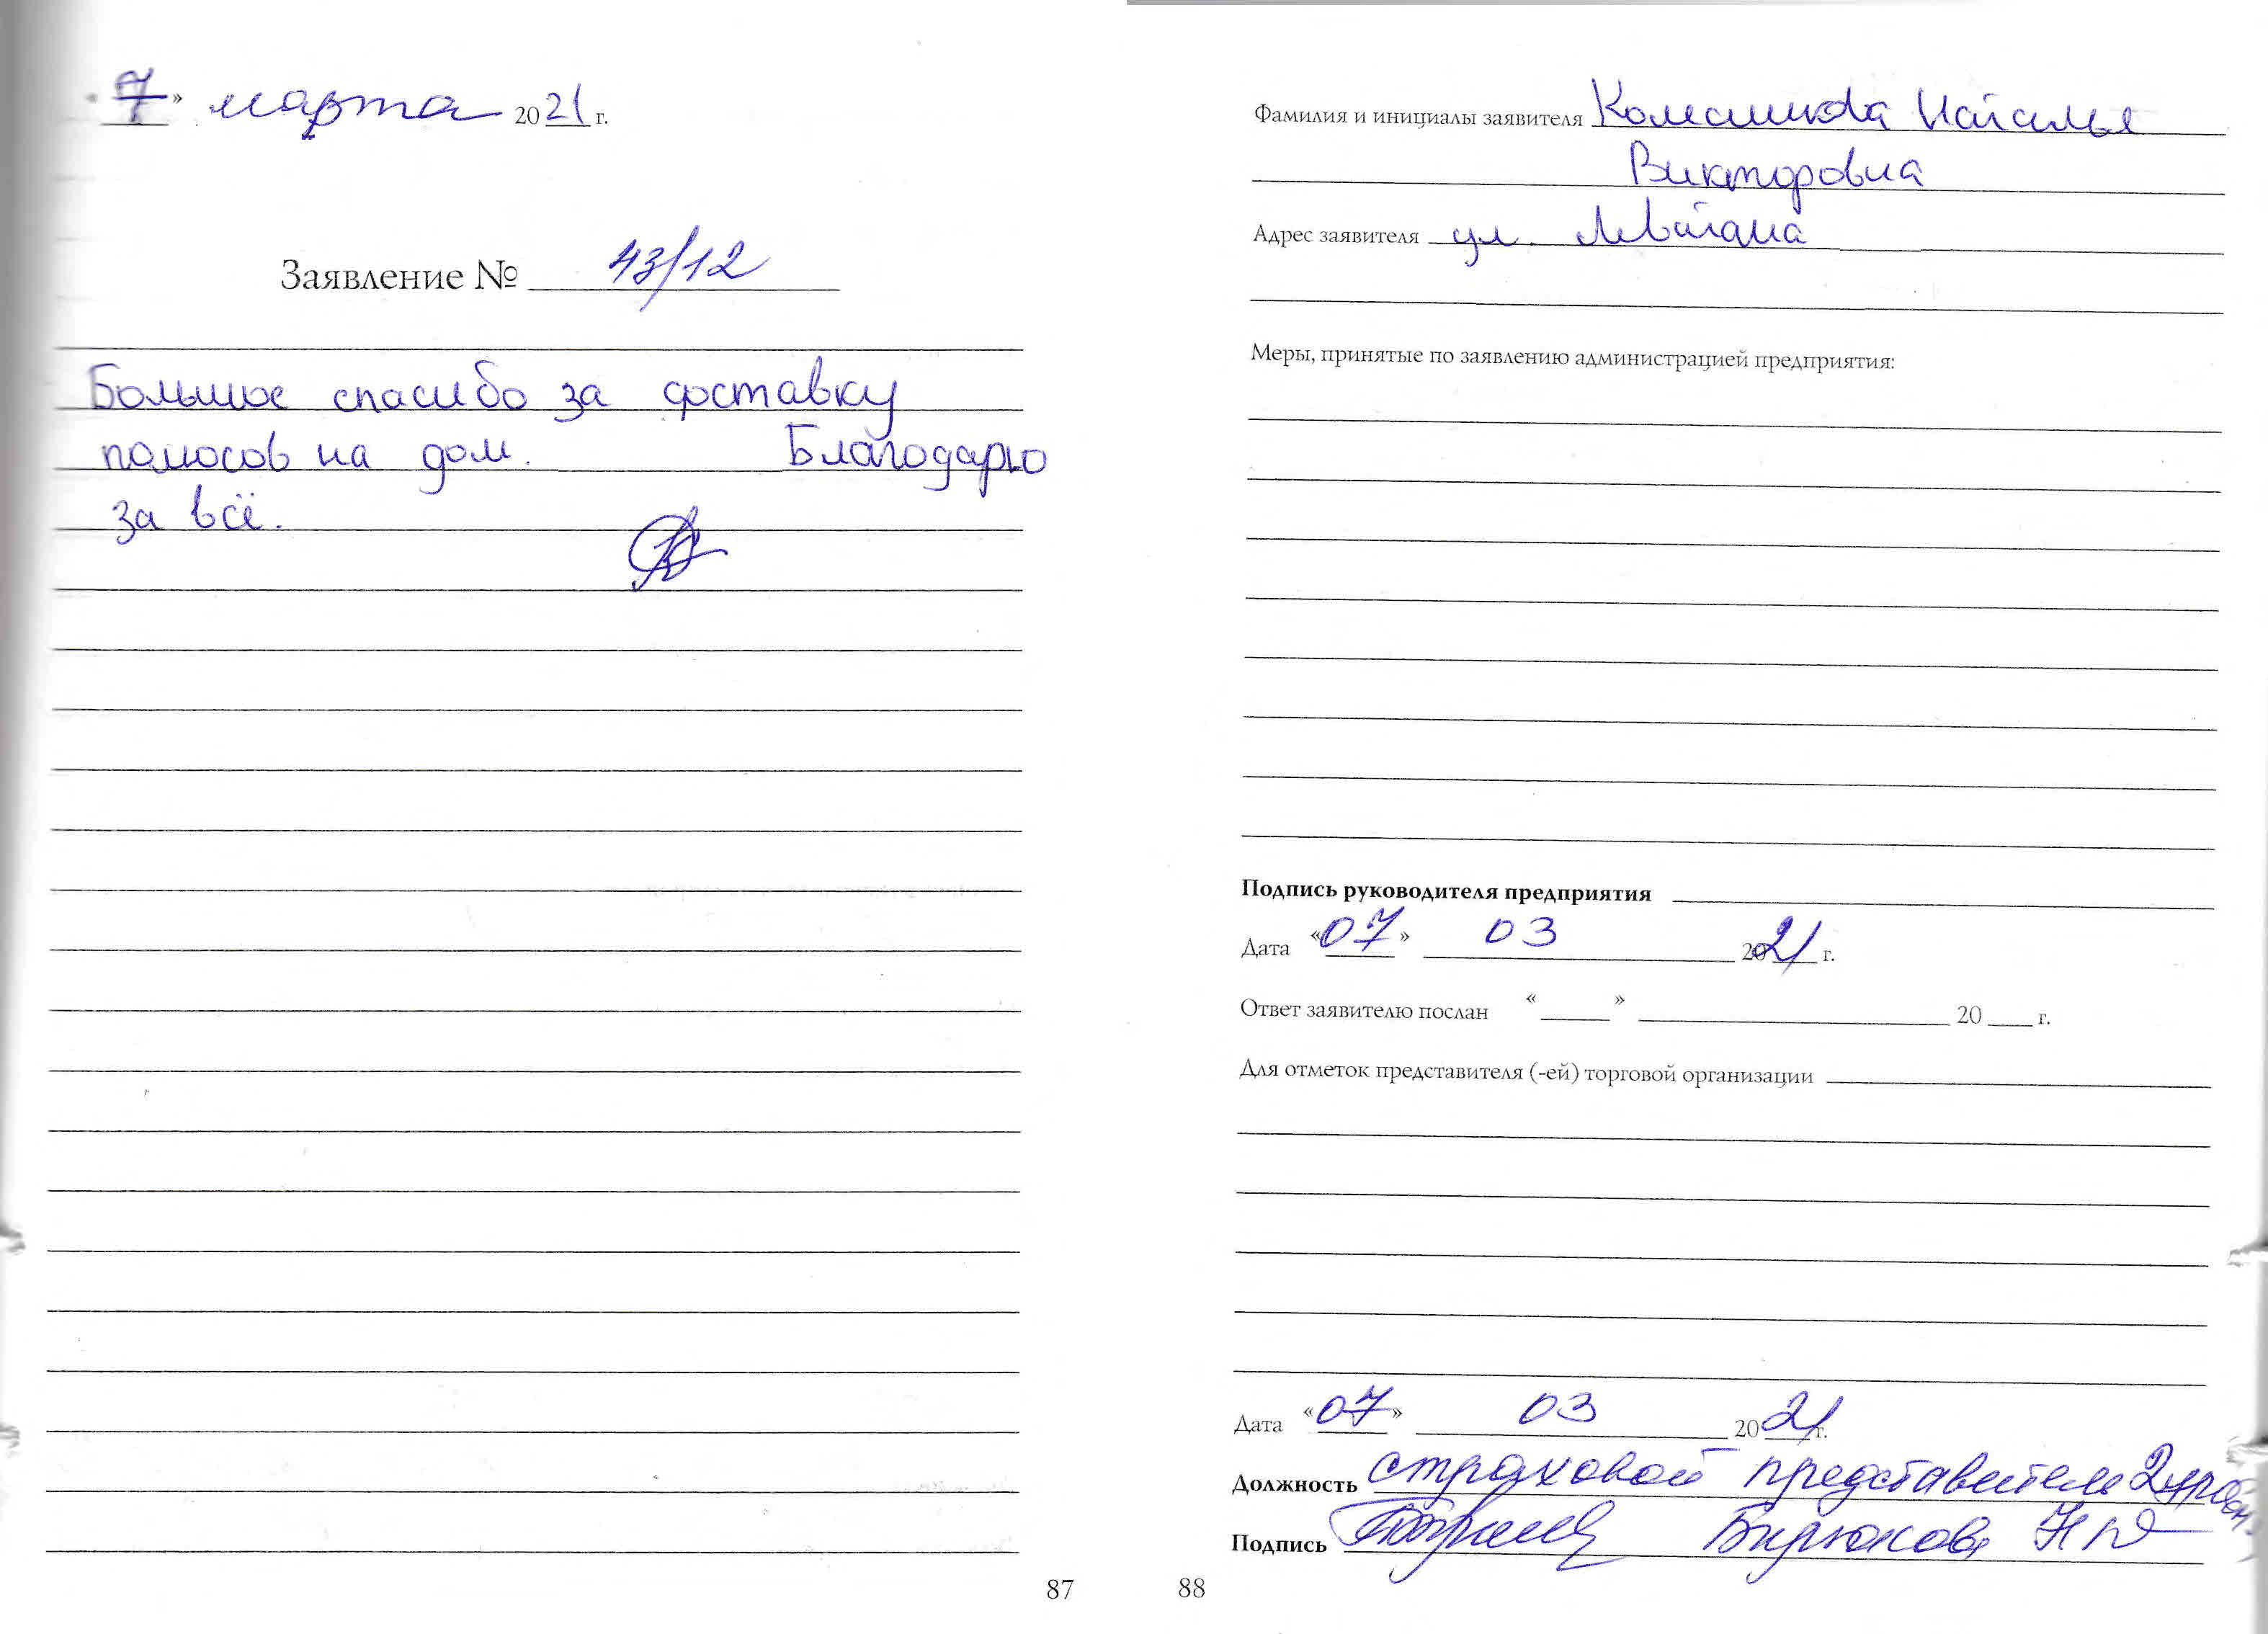 « 7 » марта 2021 г.
Заявление № 43/12
Большое спасибо за доставку
полюсов на дом. Благодарю
за всё.
87
Фамилия и инициалы заявителя Наталья
Викторовна
Адрес заявителя ул.
Меры, принятые по заявлению администрацией предприятия:
Подпись руководителя предприятия
Дата «07» 03 2021 г.
Ответ заявителю послан « » 20 г.
Для отметок представителя (-ей) торговой организации
Дата «07» 03 2021 г.
Должность страховой представитель 2 уровн
Подпись Бирюкова
88